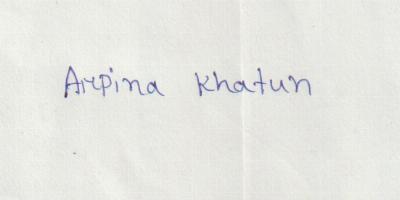 Arpina Khatun